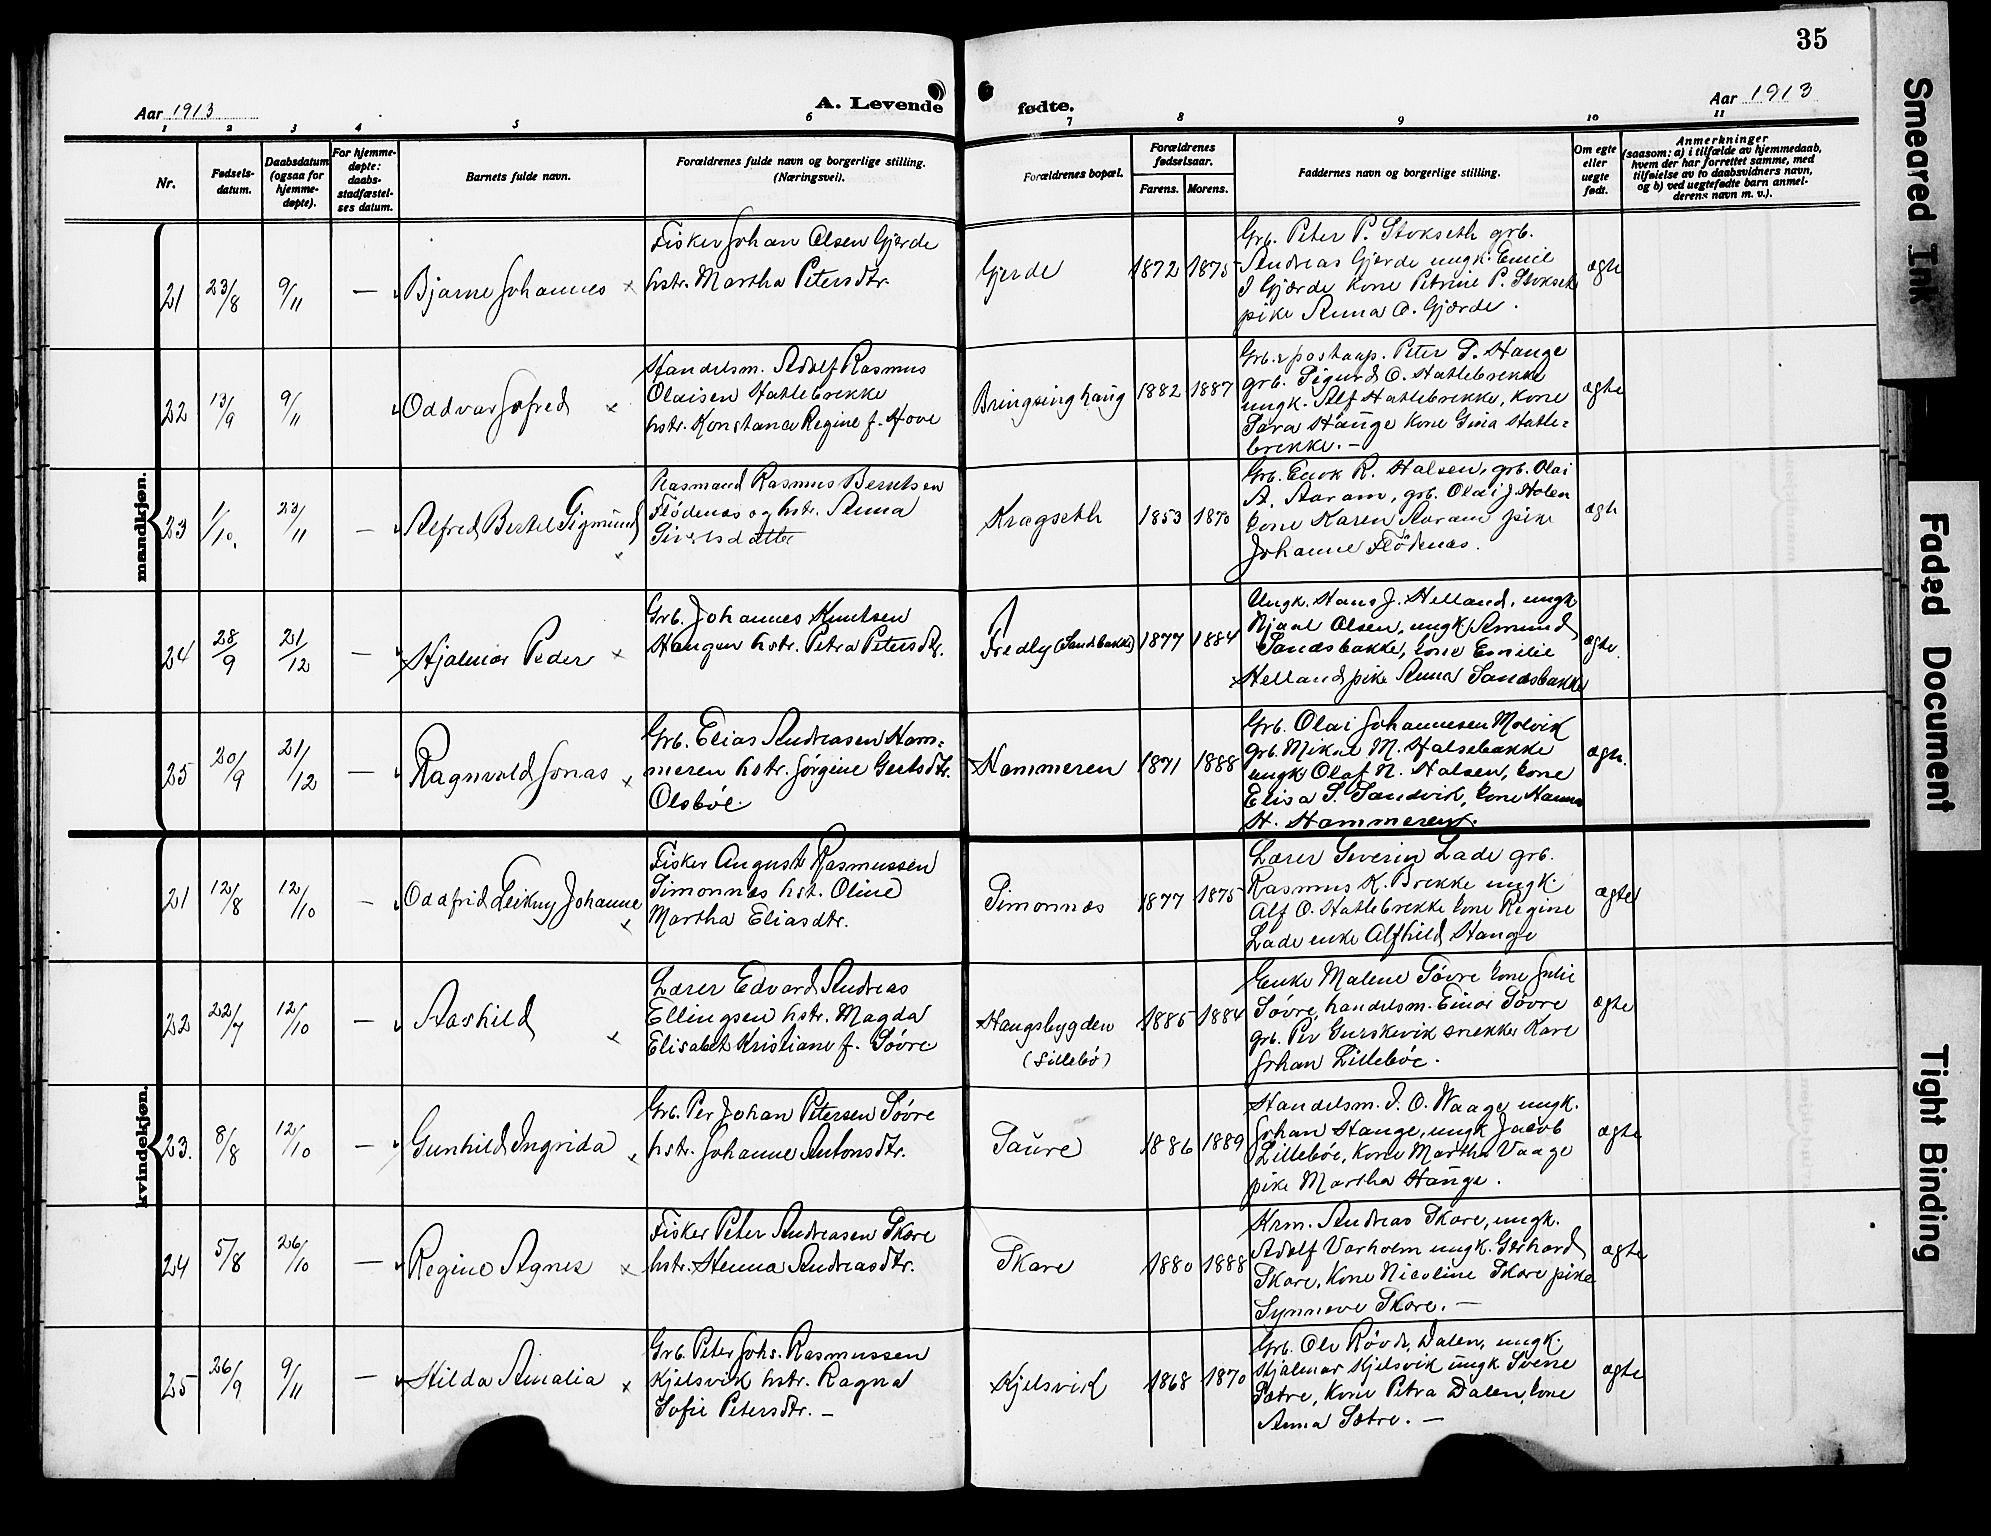 35
Aar 1913
A. Levende fødte.
Aar 1913
1 2 3 4 5 6 7 8 9 10 11
Nr.
Fødsels-
datum.
Daabsdatum
(ogsaa for
hjemme-
døpte).
For hjemme-
døpte:
daabs-
stadfæstel-
ses datum.
Barnets fulde navn.
Forældrenes fulde navn og borgerlige stilling.
(Næringsvei).
Forældrenes bopæl.
Forældrenes
fødselsaar.
Farens. Morens.
Faddernes navn og borgerlige stilling.
Om egte
eller
uegte
født.
Anmerkninger
(saasom: a) i tilfælde av hjemmedaab,
hvem der har forrettet samme, med
tilføielse av to daabsvidners navn,
og b) ved uegtefødte barn anmel-
derens navn m. v.).
mandkjøn.
21 23/8 9/11 — Bjarne Johannes
Fisker Johan Olsen Gjerde
hstr. Martha Petersdtr.
Gjerde 1872 1875
Grb. Peter P. Stokseth grb.
Andreas Gjerde ungk. Emil
J Gjærde kone Petrine P. Stokset
pike Anna O. Gjærde.
ægte
22 13/9 9/11 Oddvar Jofred
Handelsm. Adolf Rasmus
Olaisen Hatlebrekke
hstr. Konstanca Regine f. Hove
Bringsinghaug 1882 1887
Grb. & postaap. Peter P. Hauge
grb. Sigurd O. Hatlebrekke
ungk. Alf Hatlebrekke, kone
Sara Hauge kone Gina Hatle=
brekke. —
ægte
23 1/10. 23/11 — Alfred Bertel Sigmund
Rasmus Berntsen
Flødenæs og hstr. Anna
Sivertsdatter
Kragseth 1853 1870
Grb. Enok R. Halsen, grb. Olai
A. Aaram, grb. Olai J. Holen
kone Karen Aaram pike
Johanne Flødenæs.
ægte
24 28/9 21/12 — Hjalmar Peder
Grb. Johannes Knutsen
Haugen hstr. Petra Petersdtr.
Fredly (Sandsbakke) 1877 1884
Ungk. Hans J. Helland, ungk
Njaal Olsen, ungk Amund
Sandsbakke, kone Emilie
Helland pike Anna Sandsbakke
ægte.
25 20/9 21/12 — Ragnvald Jonas
Grb. Elias Andreasen Ham=
meren hstr. Jørgine Gertsdtr.
Olsbøe.
Hammeren 1871 1888
Grb. Olai Johannesen Molvik
grb. Mikal M. Halsebakke
ungk Olaf N. Halsen, kone
Elisa S. Sandvik, kone Hanna
H. Hammeren.
ægte.
kvindekjøn.
21 12/8 12/10 — Oddfrid Leikny Johanne
Fisker August Rasmussen
Simonnæs hst. Oline
Martha Eliasdtr.
Simonnæs 1877 1875
Lærer Severin Lade grb.
Rasmus K. Brekke ungk.
Alf O. Hatlebrekke kone Regine
Lade enke Alfhild Hauge
ægte
22 22/7 12/10 — Aashild
Lærer Edvard Andreas
Ellingsen hstr. Magda
Elisabet Kristiane f. Søvre.
Haugsbygden
(Lillebø)
1885 1884
Enke Malene Søvre kone Julie
Søvre, handelsm. Einar Søvre
grb. Per Gurskevik snekker Kare
Johan Lillebøe.
ægte
23. 8/8 12/10 — Gunhild Ingrida
Grb. Per Johan Petersen Søvre
hstr. Johanne Antonsdtr.
Saure 1886 1889
Handelsm. J. O. Waage ungk.
Johan Hauge, ungk Jacob
Lillebøe, kone Martha Vaage
pike Martha Hauge.
ægte
24 5/8 26/10 — Regine Agnes
Fisker Peter Andreasen Skare
hstr. Henna Andreasdtr.
Skare 1880 1888
Krm. Andreas Skare, ungk.
Adolf Varholm ungk. Gerhard
Skare, kone Nicoline Skare pike
Synneve Skare. —
ægte
25 26/9 9/11 — Hilda Amalia
Grb. Peter Johs. Rasmussen
Kjelsvik hstr. Ragna
Sofie Petersdtr. —
Kjelsvik 1868 1870
Grb. Ole Røvde, Dalen, ungk.
Hjalmar Kjelsvik ungk Svene
Sætre, kone Petra Dalen, kone
Anna Sætre. —
ægte
Smeared Ink
Faded Document
Tight Binding